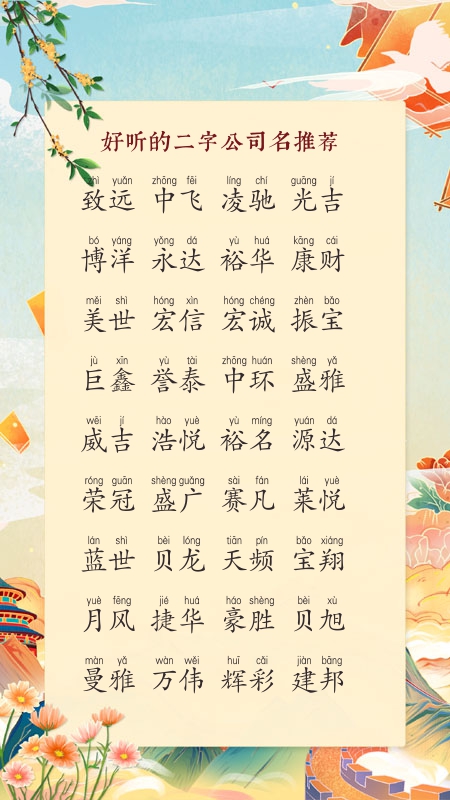 好听的二字公司名推荐
zhì yuǎn zhōng fēi líng chí guāng jí
致远 中飞 凌驰 光吉
bó yáng yǒng dá yù huá kāng cái
博洋 永达 裕华 康财
měi shì hóng xìn hóng chéng zhèn bǎo
美世 宏信 宏诚 振宝
jù xīn yù tài zhōng huán shèng yǎ
巨鑫 誉泰 中环 盛雅
wēi jí hào yuè yù míng yuán dá
威吉 浩悦 裕名 源达
róng guān shèng guǎng sài fán lái yuè
荣冠 盛广 赛凡 莱悦
lán shì bèi lóng tiān pín bǎo xiáng
蓝世 贝龙 天频 宝翔
yuè fēng jié huá háo shèng bèi xù
月风 捷华 豪胜 贝旭
màn yǎ wàn wěi huī cǎi jiàn bāng
曼雅 万伟 辉彩 建邦